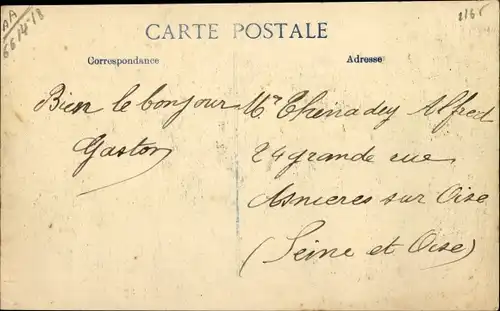 AA
6614-18
2165
CARTE POSTALE
Correspondance
Adresse
Bien le bonjour
Gaston
Mr Thenadey Alfred
24 grande rue
Asnieres sur Oise
(Seine et Oise)